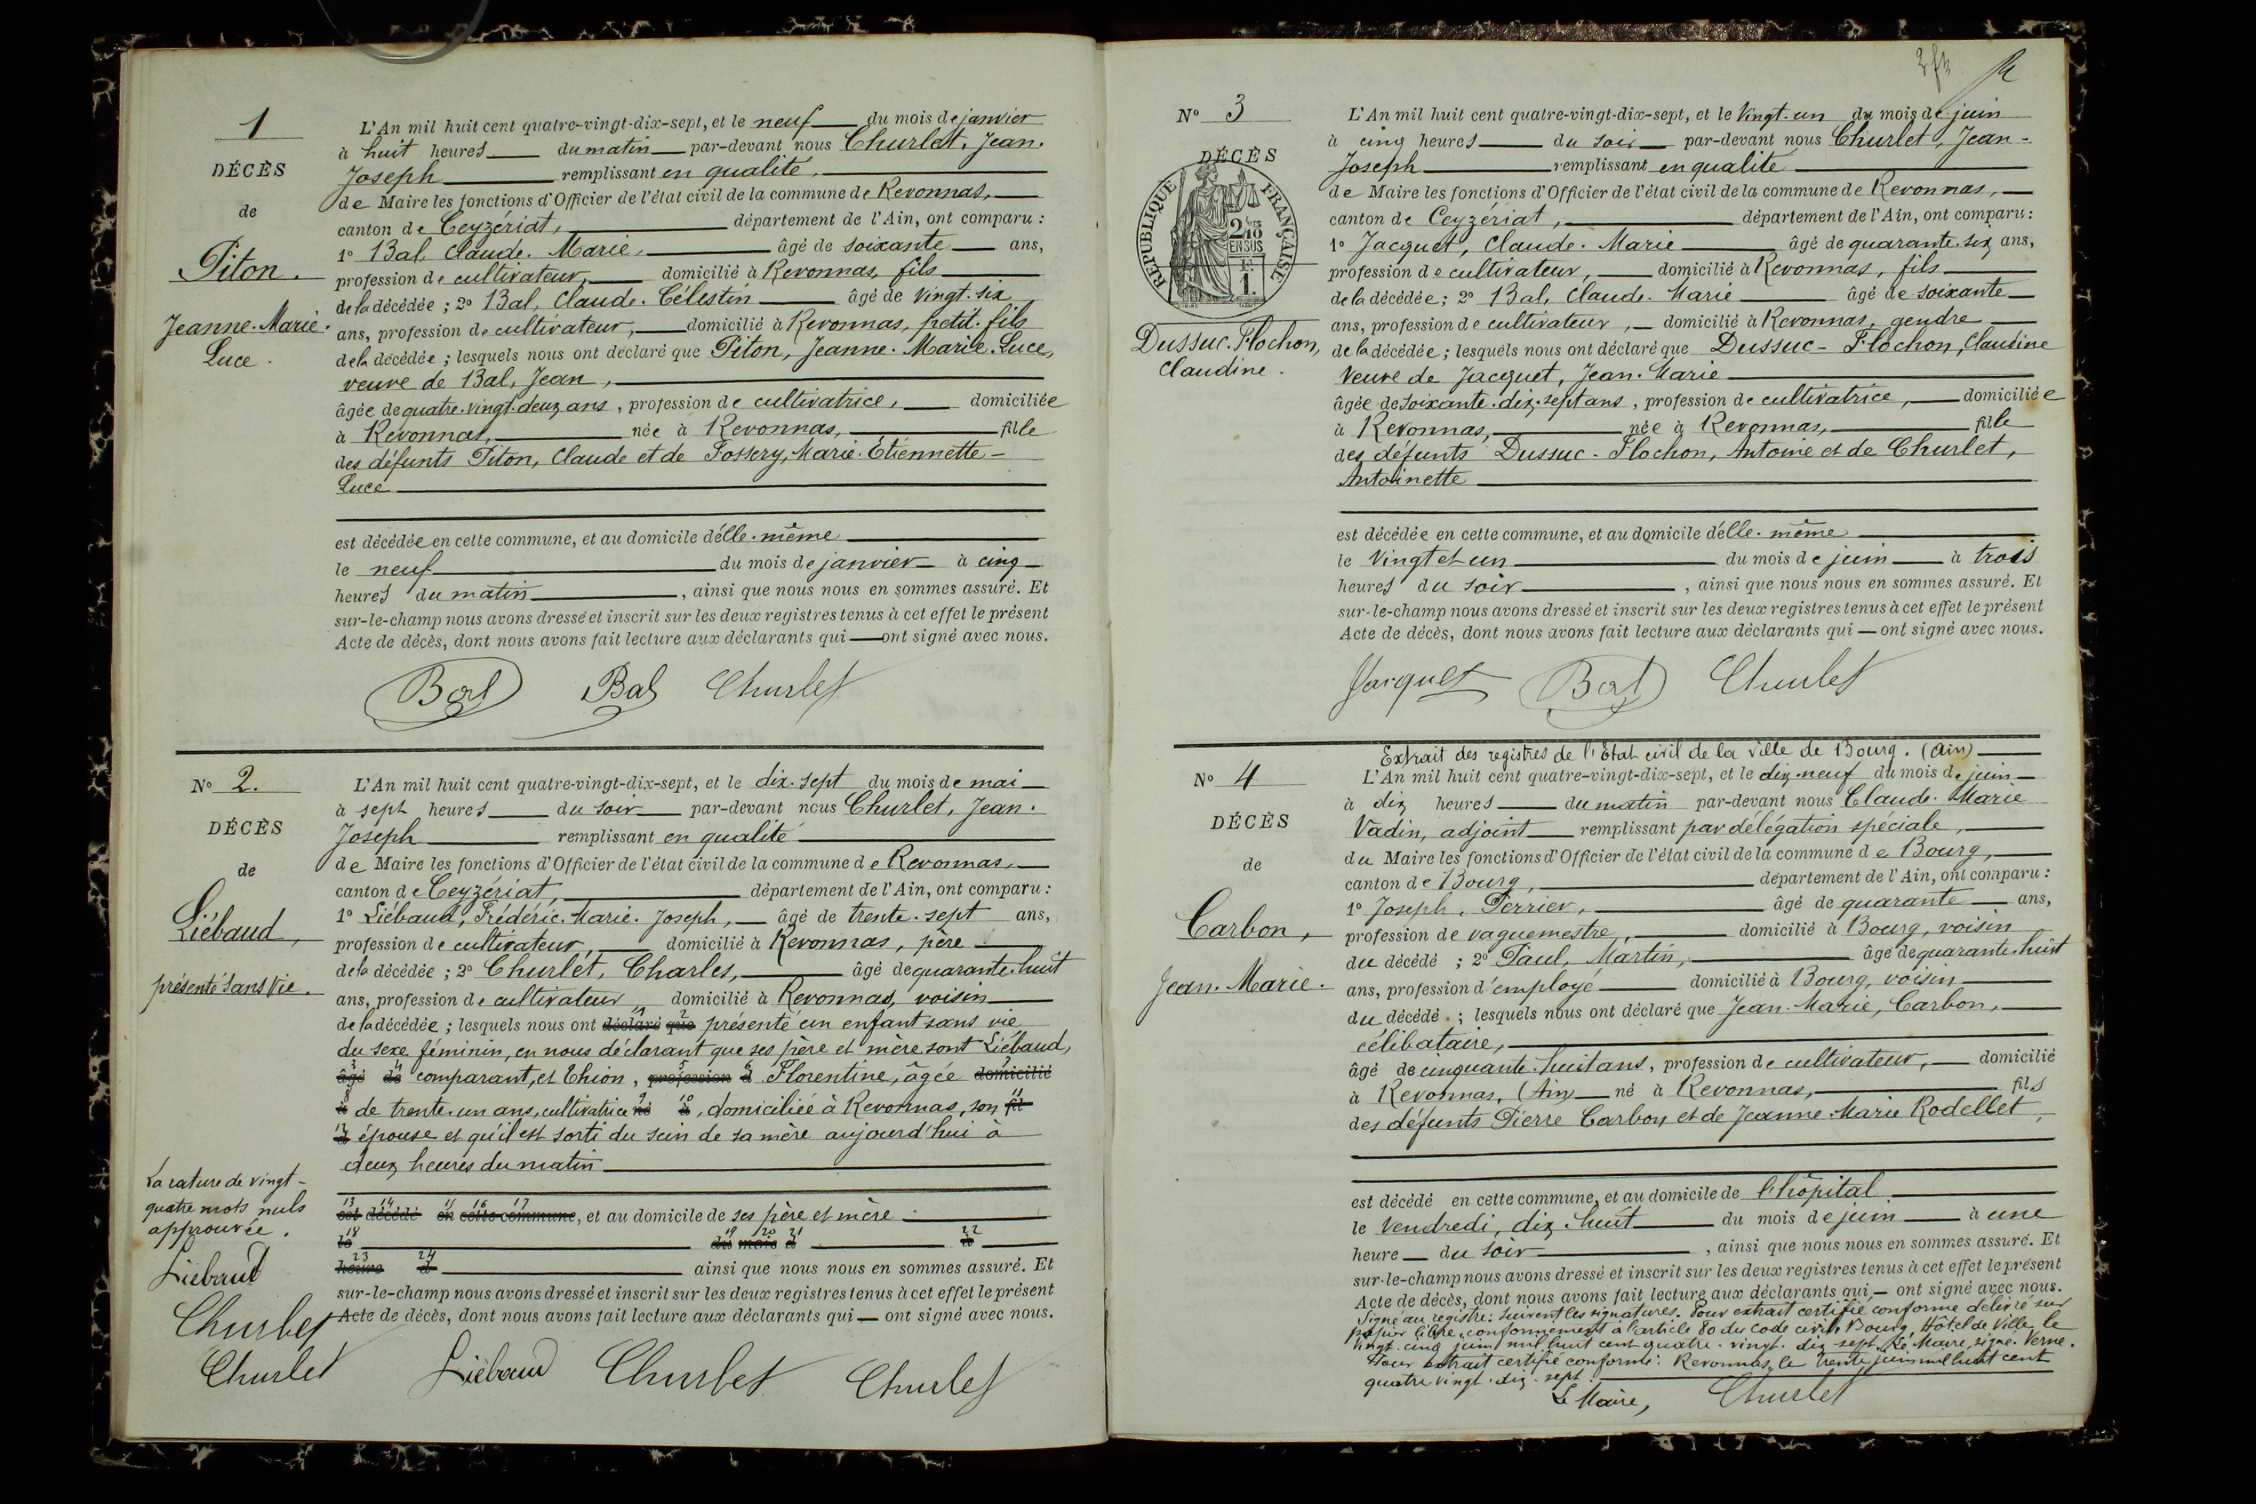 1
DÉCÈS
de
Piton.
Jeanne-Marie-
Luce.
L'An mil huit cent quatre-vingt-dix-sept, et le neuf du mois de janvier
à huit heures du matin par-devant nous Churlet, Jean-
Joseph remplissant en qualité,
de Maire les fonctions d'Officier de l'état civil de la commune de Revonnas,
canton de Ceyzériat, département de l'Ain, ont comparu :
1º Bal, Claude-Marie, âgé de soixante ans,
profession de cultivateur, domicilié à Revonnas, fils
de la décédée ; 2º Bal, Claude-Célestin âgé de vingt-six
ans, profession de cultivateur, domicilié à Revonnas, petit-fils
de la décédée ; lesquels nous ont déclaré que Piton, Jeanne-Marie-Luce,
veuve de Bal, Jean,
âgée de quatre-vingt-deux ans, profession de cultivatrice, domiciliée
à Revonnas, née à Revonnas, fille
des défunts Piton, Claude et de Marie-Etiennette-
Luce
est décédée en cette commune, et au domicile d'elle-même
le neuf du mois de janvier à cinq
heures du matin, ainsi que nous nous en sommes assuré. Et
sur-le-champ nous avons dressé et inscrit sur les deux registres tenus à cet effet le présent
Acte de décès, dont nous avons fait lecture aux déclarants qui ont signé avec nous.
Bal Bal Churlet
Nº 2.
DÉCÈS
de
Liébaud,
présenté sans vie.
L'An mil huit cent quatre-vingt-dix-sept, et le dix-sept du mois de mai
à sept heures du soir par-devant nous Churlet, Jean-
Joseph remplissant en qualité
de Maire les fonctions d'Officier de l'état civil de la commune de Revonnas,
canton de Ceyzériat, département de l'Ain, ont comparu :
1º Liébaud, Frédéric-Marie-Joseph, âgé de trente-sept ans,
profession de cultivateur, domicilié à Revonnas, père
de la décédée ; 2º Churlet, Charles, âgé de quarante-huit
ans, profession de cultivateur, domicilié à Revonnas, voisin
de la décédée ; lesquels nous ont déclaré 1 que 2 présenté un enfant sans vie
du sexe féminin, en nous déclarant que ses père et mère sont Liébaud,
âgé 3 de 4 comparant, et Thion, profession 5 d 6 Florentine, âgée domicilié 7
à 8 de trente-un ans, cultivatrice né 9 à 10, domiciliée à Revonnas, son fil 11
d 12 épouse et qu'il est sorti du sein de sa mère aujourd'hui à
deux heures du matin
13 14 15 16 17
est décédé en cette commune, et au domicile de ses père et mère
18 le 19 du 20 mois 21 d 22 à
23 heure 24 d ainsi que nous nous en sommes assuré. Et
sur-le-champ nous avons dressé et inscrit sur les deux registres tenus à cet effet le présent
Acte de décès, dont nous avons fait lecture aux déclarants qui ont signé avec nous.
La rature de vingt-
quatre mots nuls
approuvée.
Liébaud
Churlet
Churlet
Liébaud Churlet Churlet
Nº 3
DÉCÈS
RÉPUBLIQUE FRANÇAISE
2/10 EN SUS
1.
Dussuc-Flochon,
Claudine.
L'An mil huit cent quatre-vingt-dix-sept, et le vingt-un du mois de juin
à cinq heures du soir par-devant nous Churlet, Jean-
Joseph remplissant en qualité
de Maire les fonctions d'Officier de l'état civil de la commune de Revonnas,
canton de Ceyzériat, département de l'Ain, ont comparu :
1º Jacquet, Claude-Marie âgé de quarante-six ans,
profession de cultivateur, domicilié à Revonnas, fils
de la décédée ; 2º Bal, Claude-Marie âgé de soixante
ans, profession de cultivateur, domicilié à Revonnas, gendre
de la décédée ; lesquels nous ont déclaré que Dussuc-Flochon, Claudine
veuve de Jacquet, Jean-Marie
âgée de soixante-dix-sept ans, profession de cultivatrice, domiciliée
à Revonnas, née à Revonnas, fille
des défunts Dussuc-Flochon, Antoine et de Churlet,
Antoinette
est décédée en cette commune, et au domicile d'elle-même
le vingt et un du mois de juin à trois
heures du soir, ainsi que nous nous en sommes assuré. Et
sur-le-champ nous avons dressé et inscrit sur les deux registres tenus à cet effet le présent
Acte de décès, dont nous avons fait lecture aux déclarants qui ont signé avec nous.
Jacquet Bal Churlet
Extrait des registres de l'État civil de la ville de Bourg. (Ain)
Nº 4
DÉCÈS
de
Carbon,
Jean-Marie.
L'An mil huit cent quatre-vingt-dix-sept, et le dix-neuf du mois de juin
à dix heures du matin par-devant nous Claude-Marie
Vadin, adjoint remplissant par délégation spéciale,
du Maire les fonctions d'Officier de l'état civil de la commune de Bourg,
canton de Bourg, département de l'Ain, ont comparu :
1º Joseph, Perrier, âgé de quarante ans,
profession de vaguemestre, domicilié à Bourg, voisin
du décédé ; 2º Paul, Martin, âgé de quarante-huit
ans, profession d'employé domicilié à Bourg, voisin
du décédé ; lesquels nous ont déclaré que Jean-Marie, Carbon,
célibataire,
âgé de cinquante-huit ans, profession de cultivateur, domicilié
à Revonnas, (Ain) né à Revonnas, fils
des défunts Pierre Carbon et de Jeanne-Marie Rodellet,
est décédé en cette commune, et au domicile de l'hôpital
le vendredi, dix-huit du mois de juin à une
heure du soir, ainsi que nous nous en sommes assuré. Et
sur-le-champ nous avons dressé et inscrit sur les deux registres tenus à cet effet le présent
Acte de décès, dont nous avons fait lecture aux déclarants qui ont signé avec nous.
Signé au registre : suivent les signatures. Pour extrait certifié conforme délivré sur
papier libre, conformément à l'article 80 du code civil, Bourg, Hôtel de Ville, le
vingt-cinq juin mil huit cent quatre-vingt-dix-sept. Le Maire, signé : Verne.
Pour extrait certifié conforme : Revonnas, le trente juin mil huit cent
quatre vingt-dix-sept.
Le Maire, Churlet